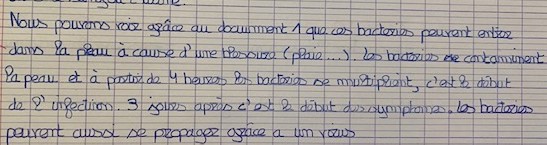 Nous pouvons voir agrâce au documment 1 que ces bactories peuvent entrer
dans la peau à cause d'une blessure (plaie...). Les bactories contaminent
la peau et à partir de 4 heures les bactories se multiplient, c'est le début
de l'infection. 3 jours après c'est le début des symptomes. Les bactories
peuvent aussi se propager agrâce a un